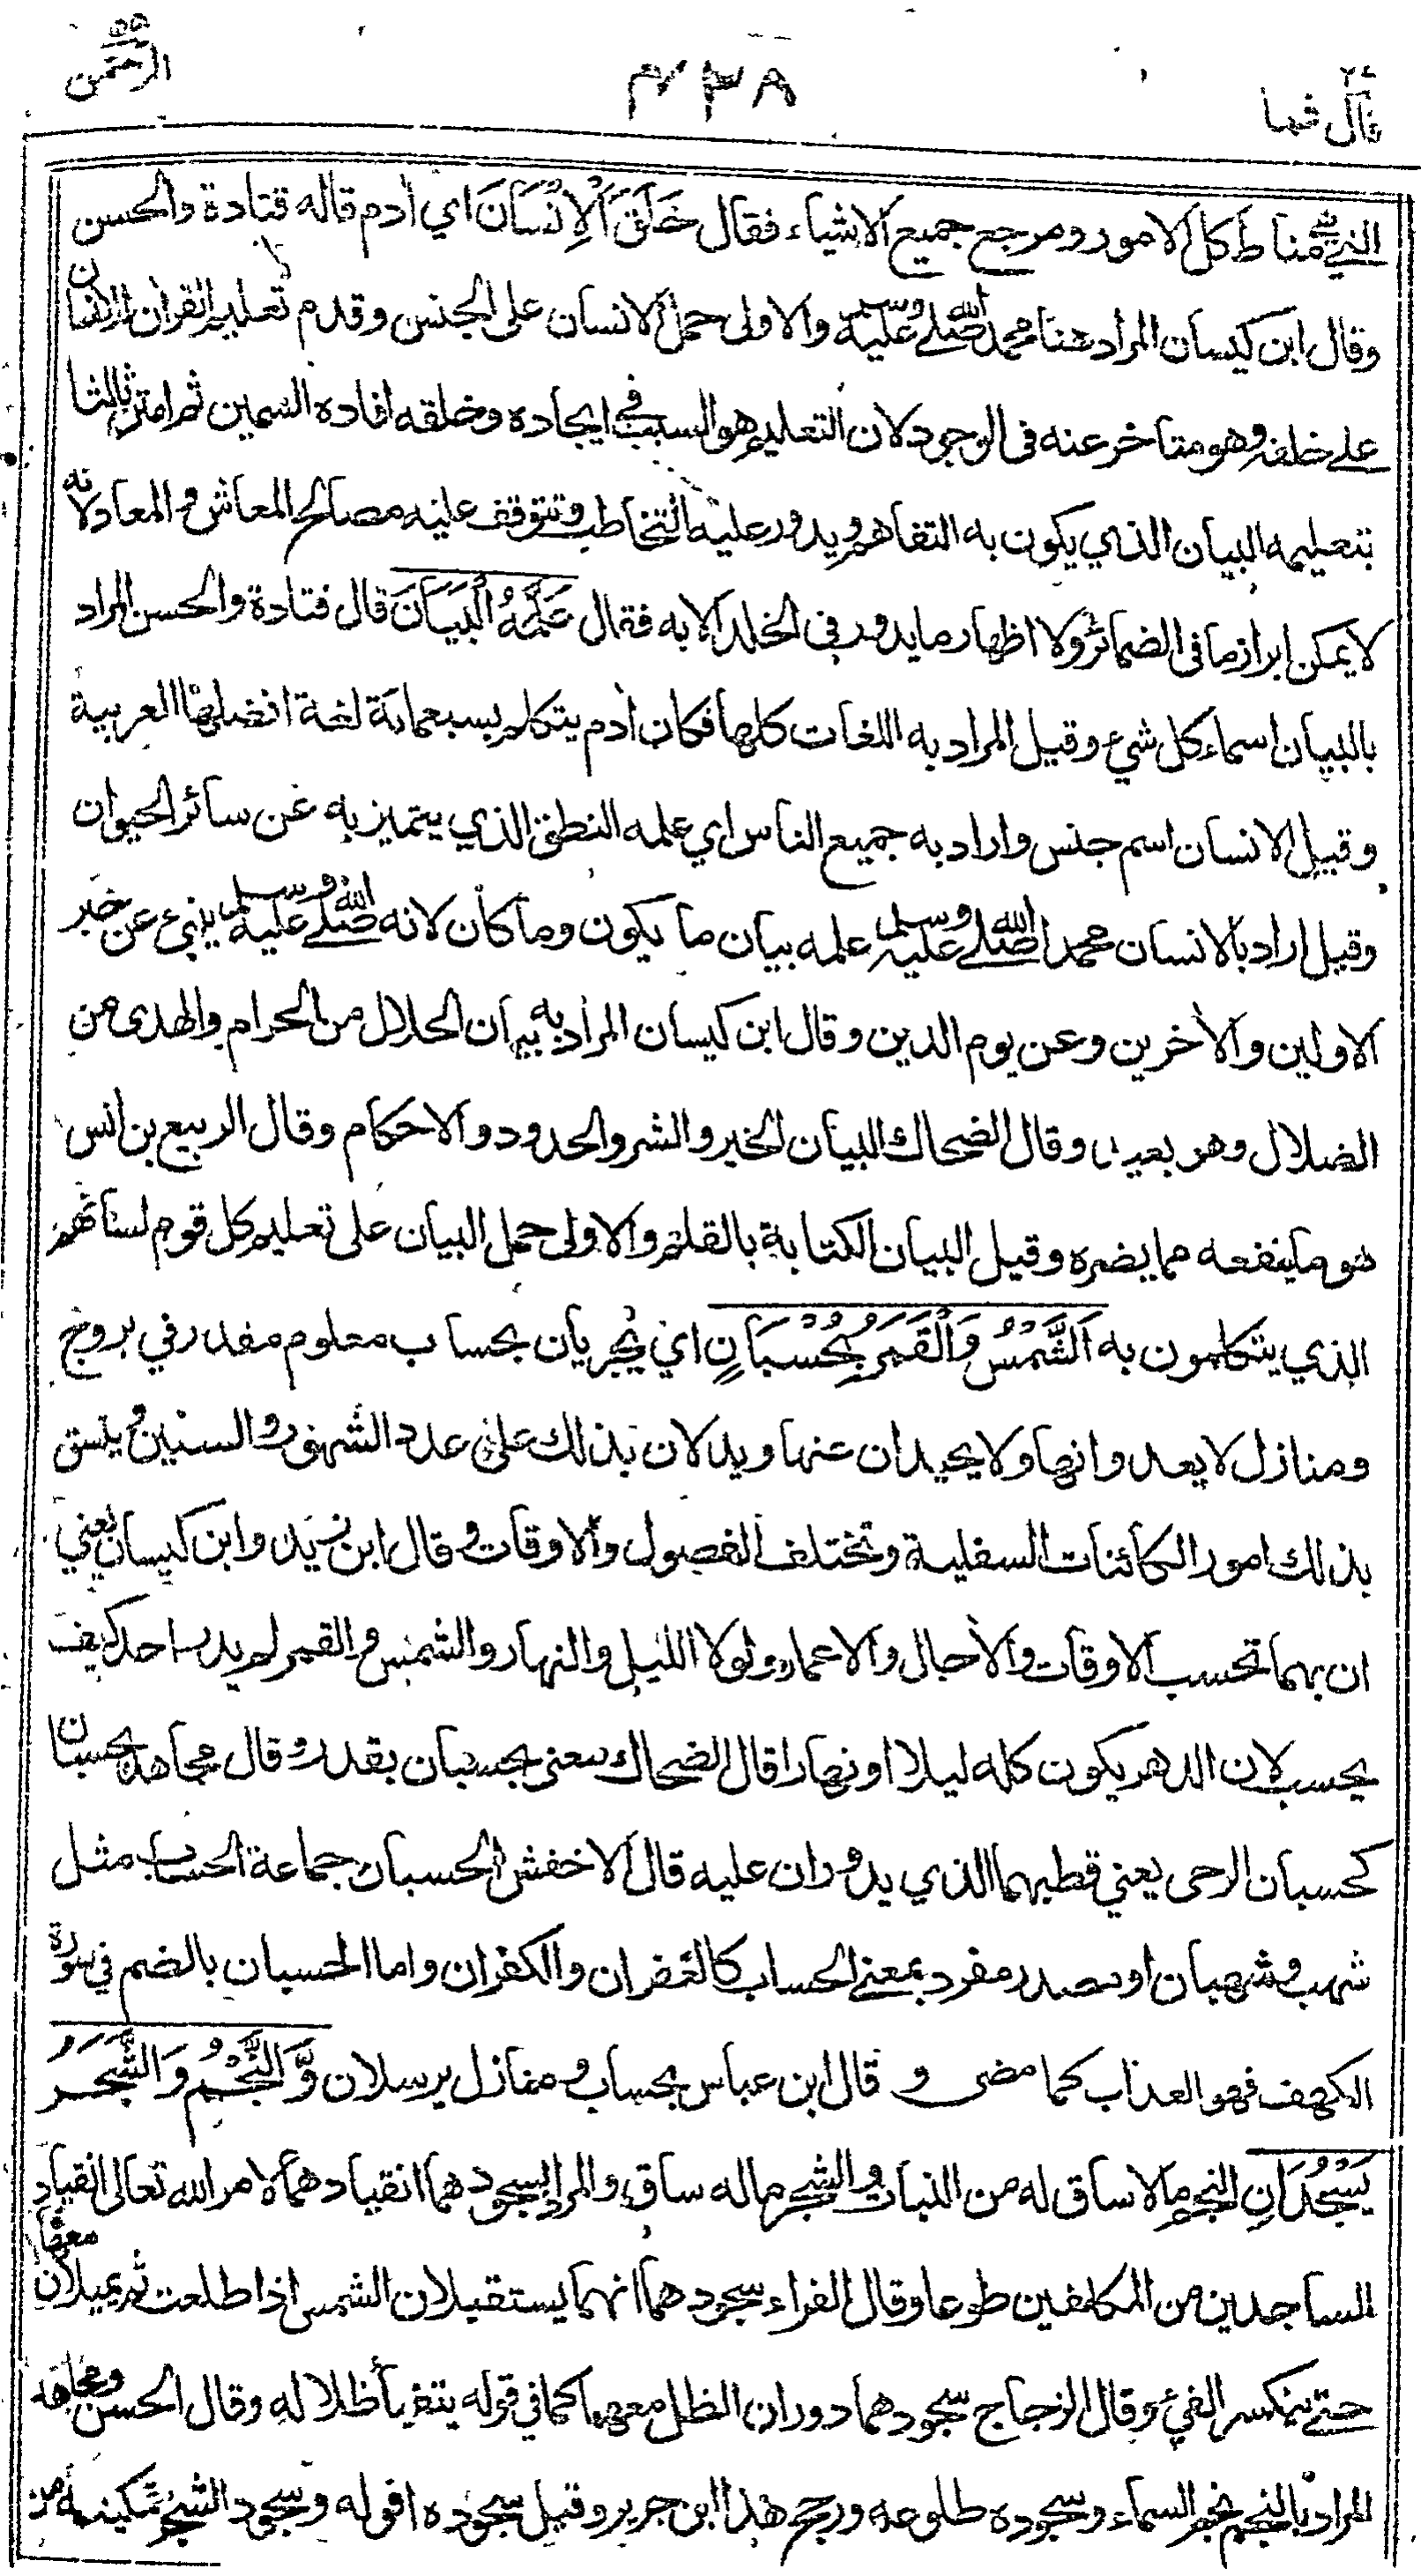 قال فما
٢٣٨
الرحمن
التي هي مناط كل الامور ومرجع جميع الاشياء فقال خَلَقَ الْاِنْسَانَ اي أدم قاله قتادة والحسن
وقال ابن كيسان المراد هنا محمد صلى الله عليه وسلم والاولى حمل الانسان على الجنس وقدم تعليم القرأن للانسان
على خلقه وهو متاخر عنه فى الوجود لان التعليم هو السبب في ايجاده وخلقه افاده السمين ثم امتن ثالثا
بتعليمه البيان الذي يكون به التفاهم ويدور عليه التخاطب وتتوقف عليه مصالح المعاش والمعاد لانه
لا يمكن ابراز ما فى الضمائر ولا اظهار ما يدور فى الخلد الا به فقال عَلَّمَهُ الْبَيَانَ قال قتادة والحسن المراد
بالبيان اسماء كل شيء وقيل المراد به اللغات كلها فكان أدم يتكلم بسبعمائة لغة افضلها العربية
وقيل الانسان اسم جنس واراد به جميع الناس اي علمه النطق الذي يتميز به عن سائر الحيوان
وقيل اراد بالانسان محمدا صلى الله عليه وسلم علمه بيان ما يكون وما كان لانه صلى الله عليه وسلم ينبئ عن خبر
الاولين والأخرين وعن يوم الدين وقال ابن كيسان المراد به بيان الحلال من الحرام والهدى من
الضلال وهو بعيد وقال الضحاك البيان الخير والشر والحدود والاحكام وقال الربيع بن انس
هو ما ينفعه مما يضره وقيل البيان الكتابة بالقلم والاولى حمل البيان على تعليم كل قوم لسانهم
الذي يتكلمون به اَلشَّمْسُ وَالْقَمَرُ بِحُسْبَانٍ اي يجريان بحساب معلوم مقدر في بروج
ومنازل لا يعدوانها ولا يحيدان عنها ويدلان بذلك على عدد الشهور والسنين ويتسق
بذلك امور الكائنات السفلية وتختلف الفصول والاوقات وقال ابن زيد وابن كيسان يعني
ان بهما تحسب الاوقات والأجال والاعمار ولولا الليل والنهار والشمس والقمر لم يدر احد كيف
يحسب لان الدهر يكون كله ليلا او نهارا قال الضحاك معنى بحسبان بقدر وقال مجاهد بحسبان
كحسبان الرحى يعني قطبهما الذي يدوران عليه قال الاخفش الحسبان جماعة الحساب مثل
شهب وشهبان او مصدر مفرد بمعنى الحساب كالغفران والكفران واما الحسبان بالضم في سورة
الكهف فهو العذاب كما مضى و قال ابن عباس بحساب ومنازل يرسلان وَّالنَّجْمُ وَالشَّجَرُ
يَسْجُدَانِ النجم ما لا ساق له من النبات والشجر ما له ساق والمراد بسجودهما انقيادهما لامر الله تعالى انقياد
الساجدين من المكلفين طوعا وقال الفراء سجودهما انهما يستقبلان الشمس اذا طلعت ثم يميلان معها
حتى ينكسر الفيء وقال الزجاج سجودهما دوران الظل معهما كما في قوله يتفيأ ظلاله وقال الحسن ومجاهد
المراد بالنجم نجم السماء وسجوده طلوعه ورجح هذا ابن جرير وقيل سجوده افوله وسجود الشجر تمكينه من